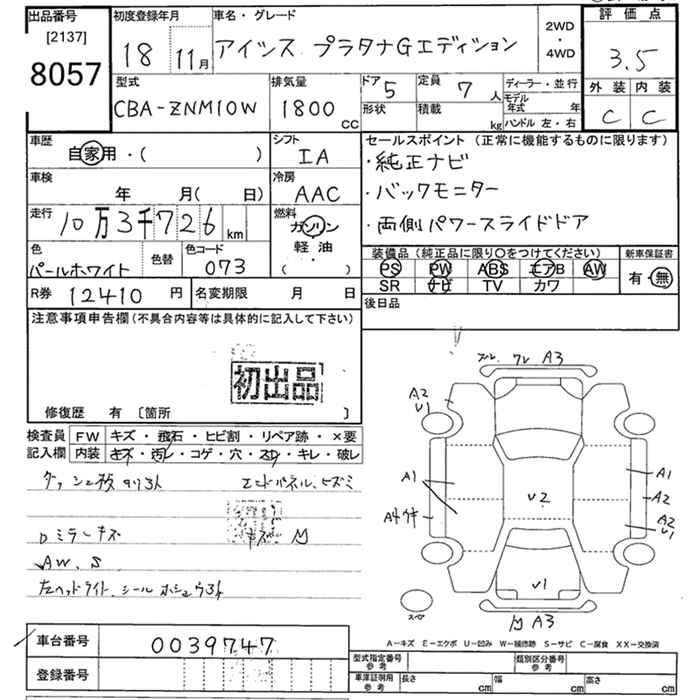 出品番号 初度登録年月 車名・グレード 評価点
[2137] 2WD
8057 18 11月 アイシス プラタナGエディション ・ 3.5
4WD
型式 排気量 ドア 5 定員 7人 ディーラー・並行 外装 内装
CBA-ZNM10W 1800cc 形状 積載 kg モデル年式 年 C C
ハンドル 左・右
車歴 シフト セールスポイント (正常に機能するものに限ります)
自家用・( ) IA ・純正ナビ
車検 冷房 ・バックモニター
年 月( 日) AAC ・両側パワースライドドア
走行 燃料
10万3千726km ガソリン
軽油
( )
色 色替 色コード 装備品 (純正品に限り○をつけてください) 新車保証書
パールホワイト 073 PS PW ABS エアB AW 有・無
SR ナビ TV カワ
R券 12410円 名変期限 月 日 後日品
注意事項申告欄(不具合内容等は具体的に記入して下さい)
初出品
修復歴 有 [箇所 ]
検査員 FW キズ・飛石・ヒビ割・リペア跡・×要
記入欄 内装 キズ・汚レ・コゲ・穴・スレ・キレ・破レ
ワレ A3
A2
U1
A1 A1
A2
A4 U2 A2
U1
ロミラーキズ キズ
AW. S
左ヘッドライト、シール U1
スペア A3
A-キズ E-エクボ U-凹み W-補修跡 S-サビ C-腐食 XX-交換済
車台番号 0039747
登録番号
型式指定番号 参考 類別区分番号 参考
車庫証明用 参考 長さ cm 幅 cm 高さ cm